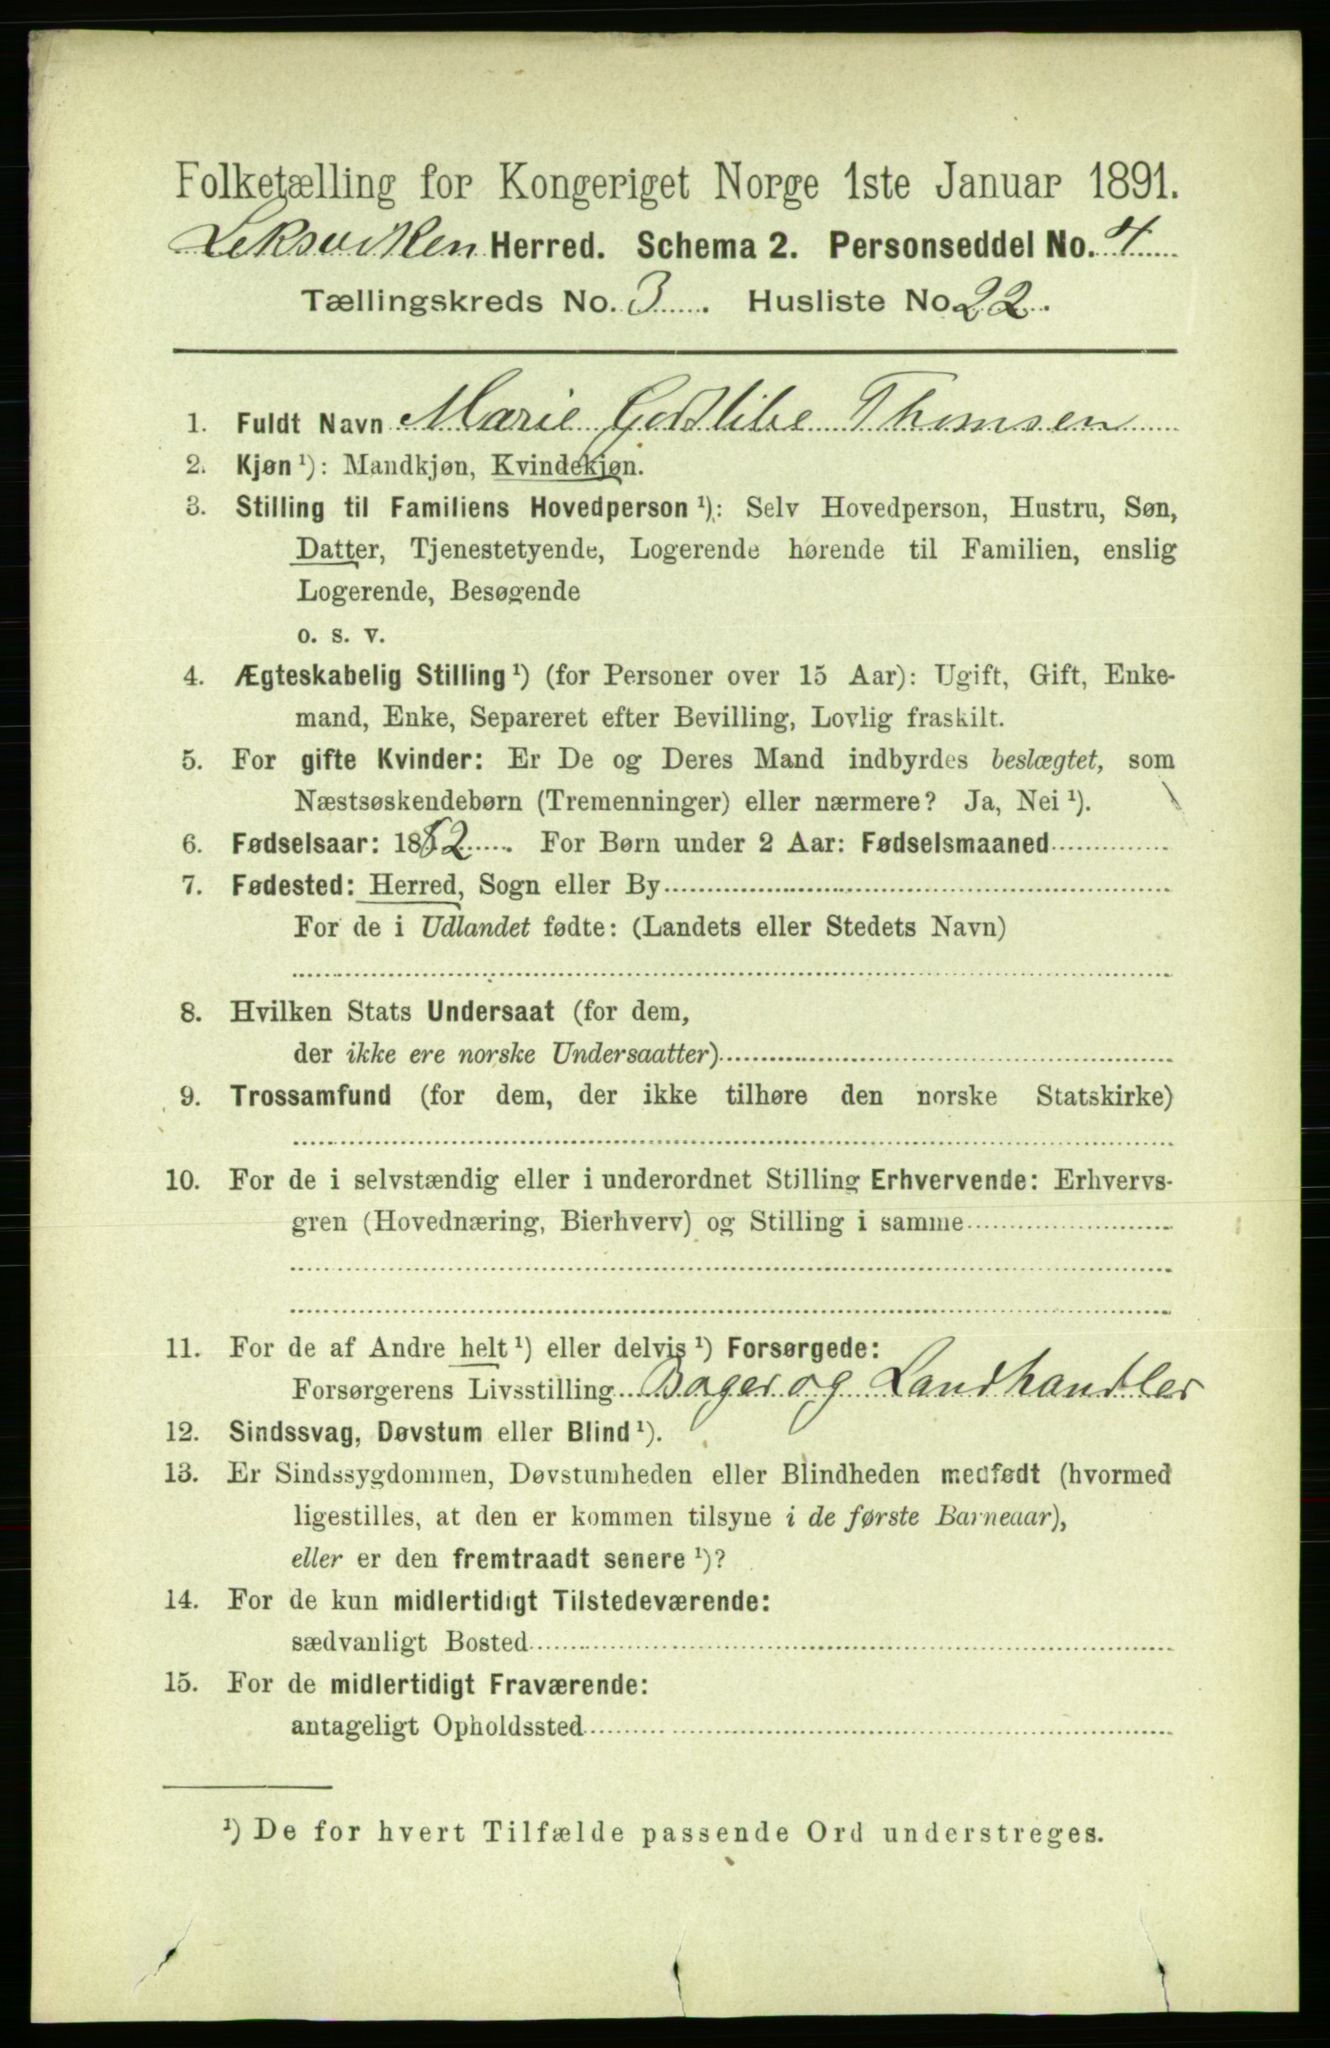 Folketælling for Kongeriget Norge 1ste Januar 1891.
Leksviken Herred. Schema 2. Personseddel No. 4
Tællingskreds No. 3. Husliste No. 22.
1. Fuldt Navn Marie Gottlibe Thomsen
2. Kjøn ¹): Mandkjøn, Kvindekjøn.
3. Stilling til Familiens Hovedperson ¹): Selv Hovedperson, Hustru, Søn,
Datter, Tjenestetyende, Logerende hørende til Familien, enslig
Logerende, Besøgende
o. s. v.
4. Ægteskabelig Stilling ¹) (for Personer over 15 Aar): Ugift, Gift, Enke-
mand, Enke, Separeret efter Bevilling, Lovlig fraskilt.
5. For gifte Kvinder: Er De og Deres Mand indbyrdes beslægtet, som
Næstsøskendebørn (Tremenninger) eller nærmere? Ja, Nei ¹).
6. Fødselsaar: 1882. For Børn under 2 Aar: Fødselsmaaned
7. Fødested: Herred, Sogn eller By
For de i Udlandet fødte: (Landets eller Stedets Navn)
8. Hvilken Stats Undersaat (for dem,
der ikke ere norske Undersaatter)
9. Trossamfund (for dem, der ikke tilhøre den norske Statskirke)
10. For de i selvstændig eller i underordnet Stilling Erhvervende: Erhvervs-
gren (Hovednæring, Bierhverv) og Stilling i samme
11. For de af Andre helt ¹) eller delvis ¹) Forsørgede:
Forsørgerens Livsstilling Bager og Landhandler
12. Sindssvag, Døvstum eller Blind ¹).
13. Er Sindssygdommen, Døvstumheden eller Blindheden medfødt (hvormed
ligestilles, at den er kommen tilsyne i de første Barneaar),
eller er den fremtraadt senere ¹)?
14. For de kun midlertidigt Tilstedeværende:
sædvanligt Bosted
15. For de midlertidigt Fraværende:
antageligt Opholdssted
¹) De for hvert Tilfælde passende Ord understreges.